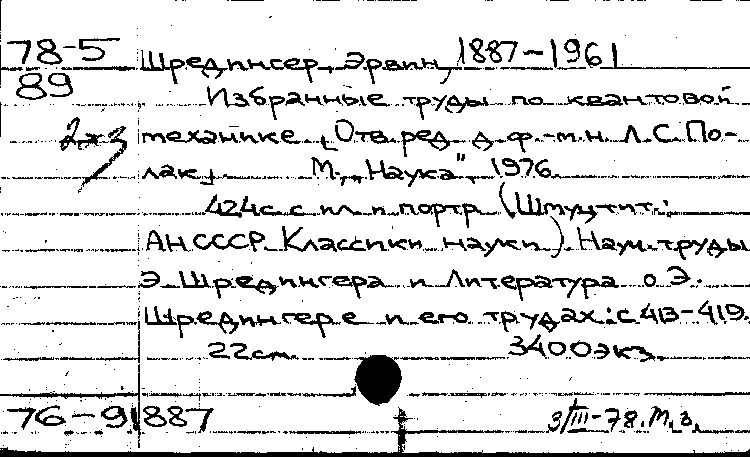 78-5 Шредингер, Эрвин, 1887-1961
89 Избранные труды по квантовой
2хз механике. [Отв. ред. д. ф.-м. н. Л. С. По-
лак]. М., „Наука", 1976.
424с. с ил. и портр. (Шмуцтит.:
АН СССР. Классики науки). Наум. труды
Э. Шредингера и литература о Э.
Шредингере и его трудах: с. 413-419.
22см. 3400экз.
76-91887 3/III-78. М. З.